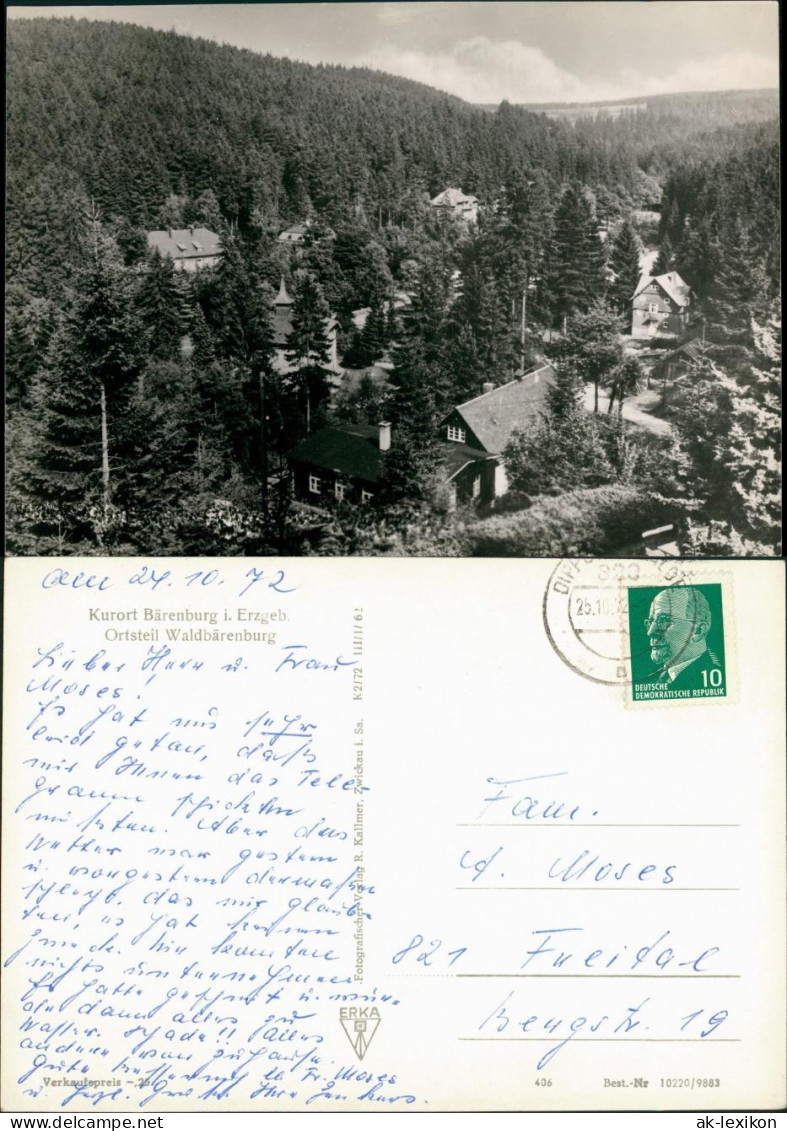 am 24. 10. 72
Kurort Bärenburg i. Erzgeb.
Ortsteil Waldbärenburg
Lieber Herr u. Frau
Moses!
Es hat uns sehr
leid getan, daß
wir Ihnen das Tele-
gramm schicken
mußten. Aber das
Wetter war gestern
u. vorgestern dermaßen
schlecht, das wir glaub-
ten, es hat keinen
Zweck. Wir konnten
nichts unternehmen
Es hatte geschneit u. wur-
de dann alles zu
Wasser. Schade!! Alles
andere von zuhause.
Gute Besserung Fr. Moses
u. herzl. Grüße Ihre
K2/72 III/1/62
Fotografischer Verlag R. Kallmer, Zwickau i. Sa.
ERKA
Verkaufspreis -.25
25.10.72
820
DEUTSCHE
DEMOKRATISCHE REPUBLIK
10
Fam.
A. Moses
821 Freital
Bergstr. 19
406 Best.-Nr 10220/9883
delcampe.net
ak-lexikon